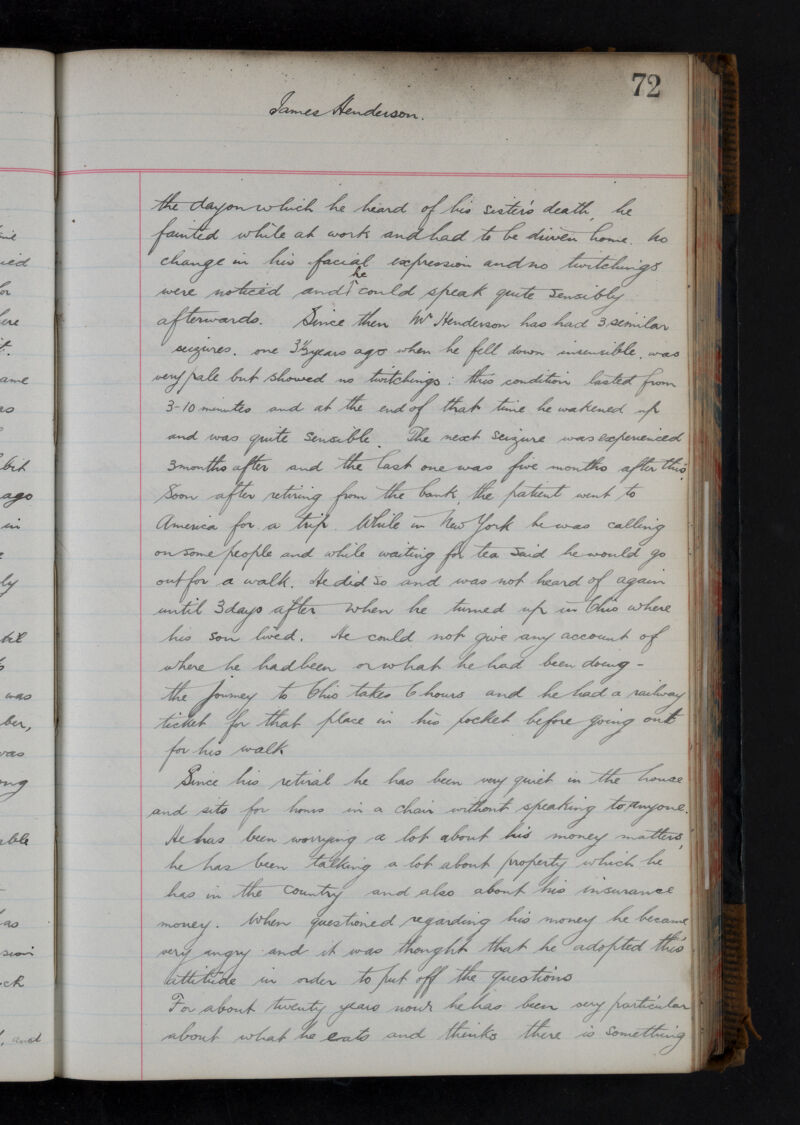 72
James Henderson.
the day on which he heard of his sister's death, he
fainted while at work and had to be driven home. No
change in his facial expression and no twitchings
were noticed and he could speak quite sensibly
afterwards. Since then Mr Henderson has had 3 similar
seizures. one 3½ years ago when he fell down insensible, was
very pale but showed no twitchings: this condition lasted from
3-10 minutes and at the end of that time he wakened up
and was quite sensible. The next seizure was experienced
3 months after and the last one was five months after this.
Soon after retiring from the bank, the patient went to
America for a trip. While in New York he was calling
on some people and while waiting for tea said he would go
out for a walk. He did so and was not heard of again
until 3 days after when he turned up in Ohio where
his son lived. He could not give any account of
where he had been or what he had been doing -
the journey to Ohio takes 6 hours and he had a railway
ticket for that place in his pocket before going out
for his walk
Since his retiral he has been very quiet in the house
and sits for hours in a chair without speaking to anyone.
He has been worrying a lot about his money matters,
he has been talking a lot about property which he
has in the country and also about his insurance
money. When questioned regarding his money he became
very angry and it was thought that he adopted this
attitude in order to put off the questions
For about twenty years now he has been very particular
about what he eats and thinks there is something